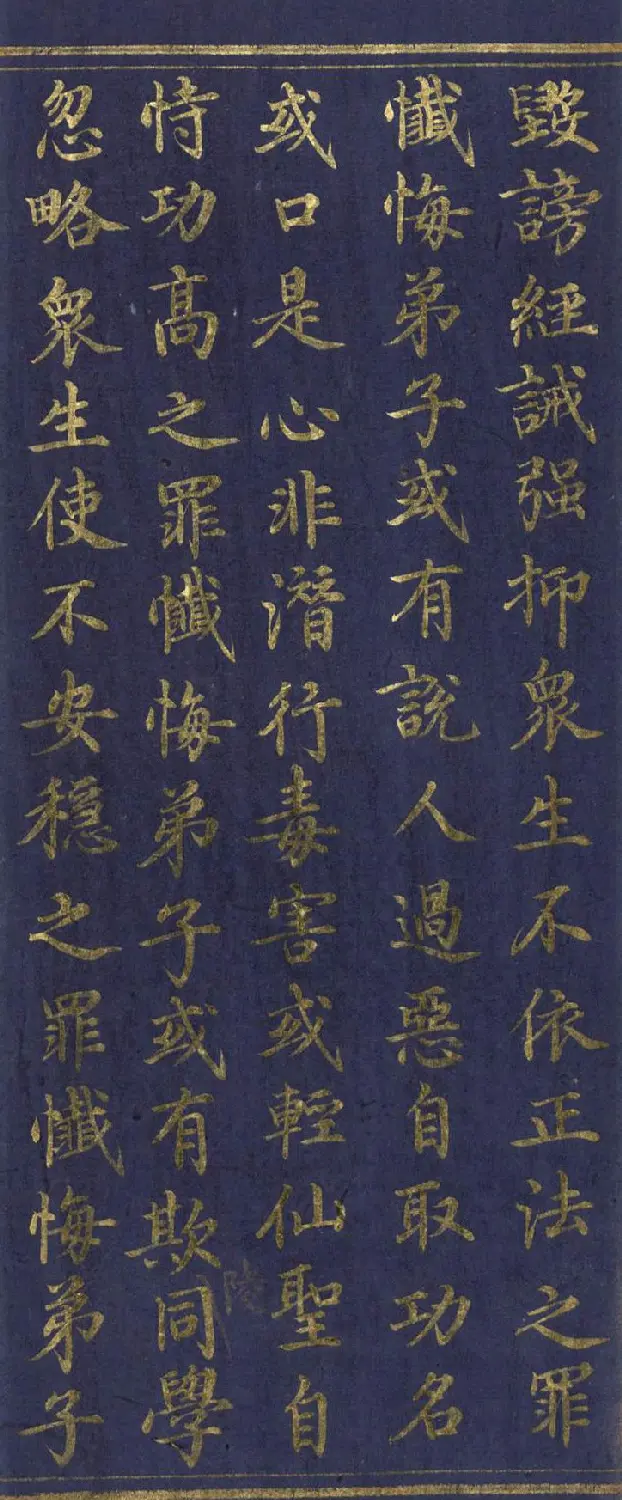 毀謗經誡强抑衆生不依正法之罪
懴悔弟子或有説人過惡自取功名
或口是心非潛行毒害或輕仙聖自
恃功髙之罪懴悔弟子或有欺同學
忽略衆生使不安穩之罪懴悔弟子
陵